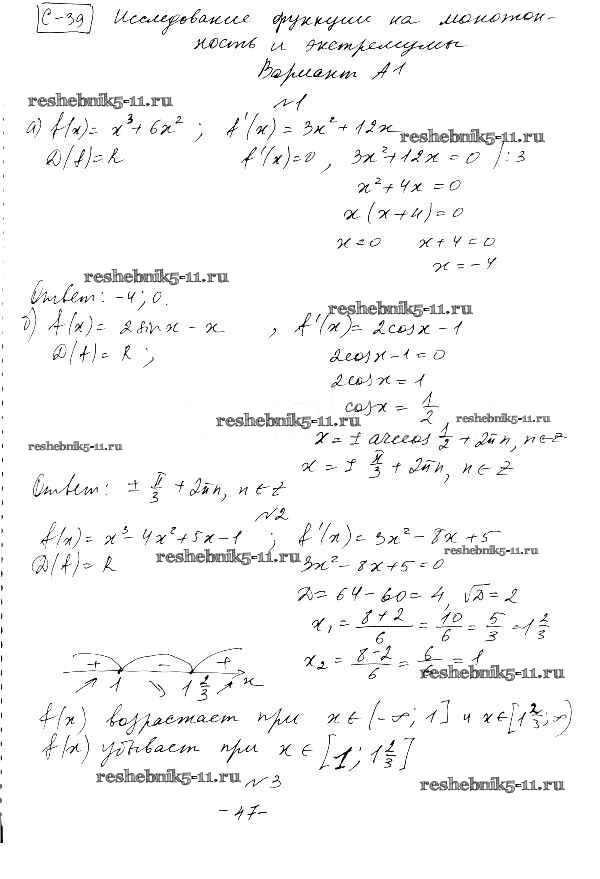 С-39 Исследование функции на монотон-
ность и экстремумы
Вариант А1
reshebnik5-11.ru
№1
а) f(x) = x³ + 6x² ; f'(x) = 3x² + 12x
reshebnik5-11.ru
D(f) = R f'(x) = 0, 3x² + 12x = 0 /:3
x² + 4x = 0
x(x+4) = 0
x = 0 x + 4 = 0
x = -4
reshebnik5-11.ru
Ответ: -4; 0.
reshebnik5-11.ru
б) f(x) = 2sinx - x , f'(x) = 2cosx - 1
D(f) = R ; 2cosx - 1 = 0
2cosx = 1
cosx = 1/2
reshebnik5-11.ru reshebnik5-11.ru
x = ± arccos 1/2 + 2πn, n∈Z
reshebnik5-11.ru
x = ± π/3 + 2πn, n∈Z
Ответ: ± π/3 + 2πn, n∈Z
№2
f(x) = x³ - 4x² + 5x - 1 ; f'(x) = 3x² - 8x + 5
reshebnik5-11.ru reshebnik5-11.ru
D(f) = R 3x² - 8x + 5 = 0
D = 64 - 60 = 4, √D = 2
x₁ = 8+2/6 = 10/6 = 5/3 = 1 2/3
x₂ = 8-2/6 = 6/6 = 1
reshebnik5-11.ru
+ - +
1 1 2/3 x
f(x) возрастает при x∈(-∞; 1] и x∈[1 2/3; ∞)
f(x) убывает при x∈[1; 1 2/3]
reshebnik5-11.ru №3 reshebnik5-11.ru
-47-